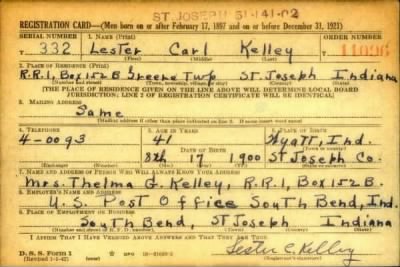 ST JOSEPH 51-141-02
REGISTRATION CARD—(Men born on or after February 17, 1897 and on or before December 31, 1921)
SERIAL NUMBER 1. NAME (Print) ORDER NUMBER
T 332 Lester Carl Kelley 11096
(First) (Middle) (Last)
2. PLACE OF RESIDENCE (Print)
R.R.1, Box 152 B, Greene Twp St. Joseph Indiana
[THE PLACE OF RESIDENCE GIVEN ON THE LINE ABOVE WILL DETERMINE LOCAL BOARD
JURISDICTION; LINE 2 OF REGISTRATION CERTIFICATE WILL BE IDENTICAL]
3. MAILING ADDRESS
Same
[Mailing address if other than place indicated on line 2. If same insert word same]
4. TELEPHONE 5. AGE IN YEARS 6. PLACE OF BIRTH
4-0093 41 Wyatt, Ind.
DATE OF BIRTH
8th 17 1900 St Joseph Co.
(Exchange) (Number) (Mo.) (Day) (Yr.) (State or country)
7. NAME AND ADDRESS OF PERSON WHO WILL ALWAYS KNOW YOUR ADDRESS
Mrs. Thelma G. Kelley, R.R.1, Box 152 B.
8. EMPLOYER'S NAME AND ADDRESS
U.S. Post Office South Bend, Ind.
9. PLACE OF EMPLOYMENT OR BUSINESS
South Bend, St Joseph Indiana
I AFFIRM THAT I HAVE VERIFIED ABOVE ANSWERS AND THAT THEY ARE TRUE.
D. S. S. Form 1
(Revised 1-1-42) GPO Lester C. Kelley